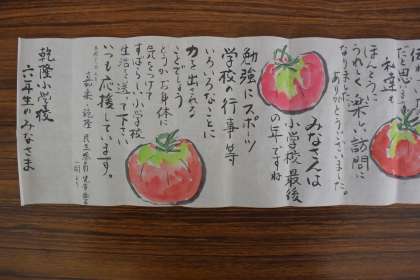 私達も
ほんとうに
うれしく楽しい訪問に
なりました。
ありがとうございました。
みなさんは
小学校最後
の年ですね
勉強にスポーツ
学校の行事等
いろいろなことに
力を出される
ことでしょう
どうかお身体に
気をつけて
すばらしい小学校
生活を送って下さい
いつも応援しています。
乾隆小学校
六年生のみなさま